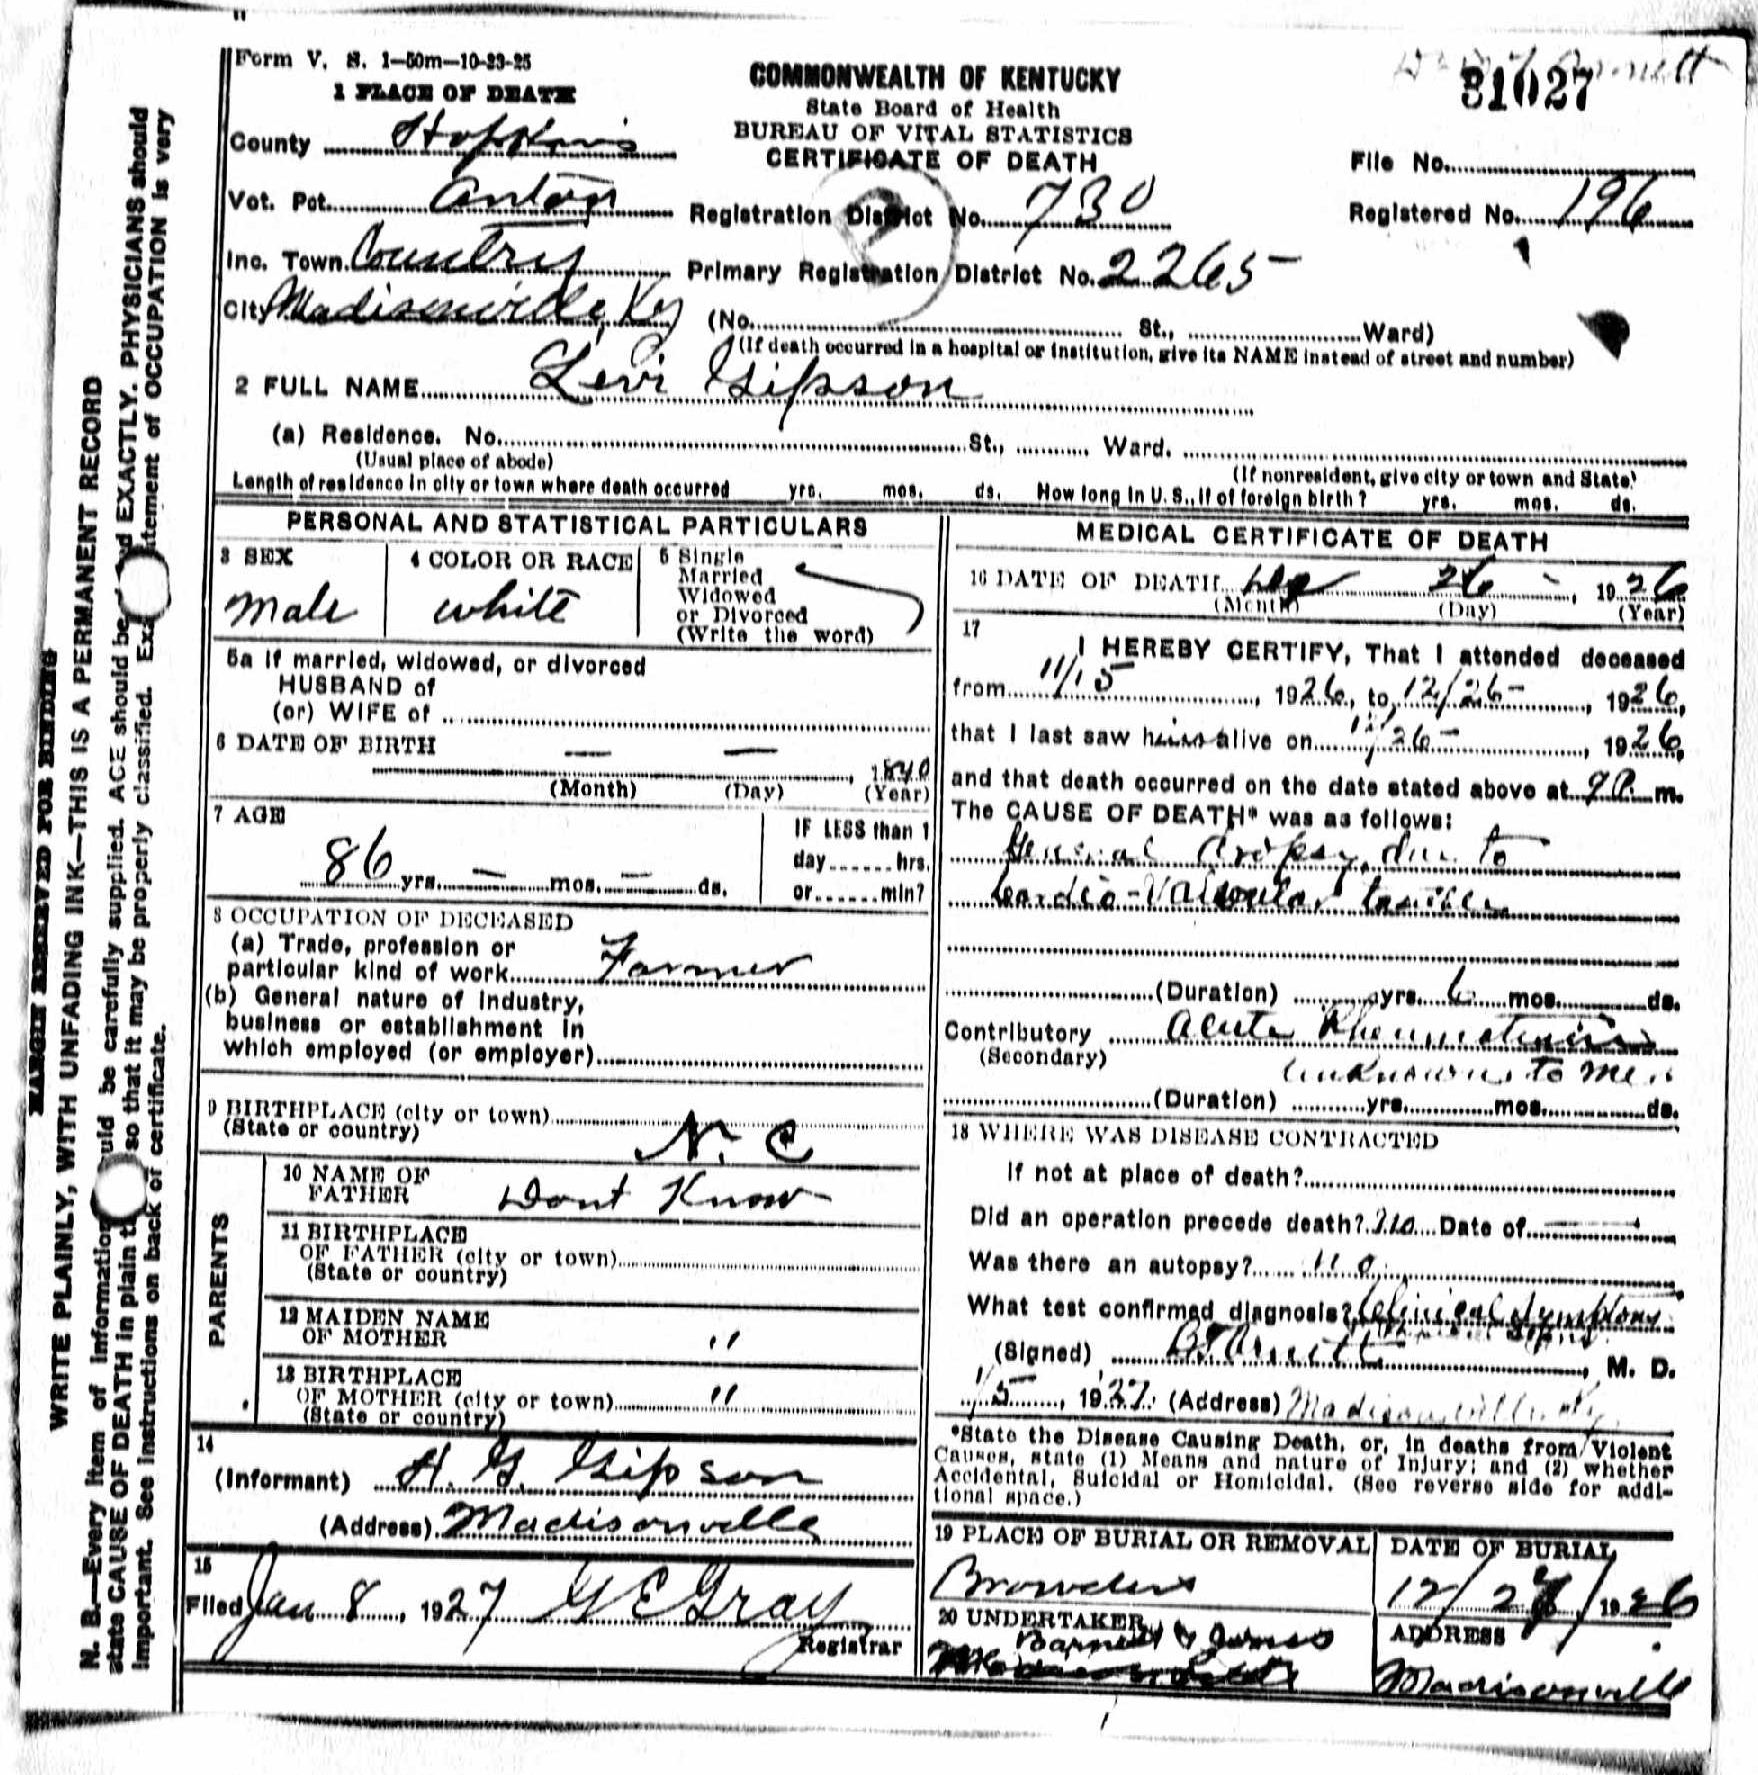 Form V. S. 1—50m—10-23-25
31027
1 PLACE OF DEATH
COMMONWEALTH OF KENTUCKY
State Board of Health
BUREAU OF VITAL STATISTICS
CERTIFICATE OF DEATH
County Hopkins
File No.
Vot. Pct. Anton
Registration District No. 730
Registered No. 196
Inc. Town. Country
Primary Registration District No. 2265
City Madisonville, Ky
(No. St., Ward)
(If death occurred in a hospital or institution, give its NAME instead of street and number)
2 FULL NAME Levi Gipson
(a) Residence. No. St., Ward.
(Usual place of abode)
(If nonresident, give city or town and State)
Length of residence in city or town where death occurred yrs. mos. ds. How long in U. S., if of foreign birth? yrs. mos. ds.
PERSONAL AND STATISTICAL PARTICULARS
3 SEX
Male
4 COLOR OR RACE
white
5 Single
Married
Widowed
or Divorced
(Write the word)
5a If married, widowed, or divorced
HUSBAND of
(or) WIFE of
6 DATE OF BIRTH — —
1840
(Month) (Day) (Year)
7 AGE
86 yrs. — mos. — ds.
IF LESS than 1
day hrs.
or min?
8 OCCUPATION OF DECEASED
(a) Trade, profession or
particular kind of work Farmer
(b) General nature of industry,
business or establishment in
which employed (or employer)
9 BIRTHPLACE (city or town)
(State or country) N. C
PARENTS
10 NAME OF
FATHER Dont Know
11 BIRTHPLACE
OF FATHER (city or town)
(State or country)
12 MAIDEN NAME
OF MOTHER "
13 BIRTHPLACE
OF MOTHER (city or town) "
(State or country)
14
(Informant) H. G. Gipson
(Address) Madisonville
15
Filed Jan 8, 1927 G E Gray
Registrar
MEDICAL CERTIFICATE OF DEATH
16 DATE OF DEATH Dec 26 — , 1926
(Month) (Day) (Year)
17
I HEREBY CERTIFY, That I attended deceased
from 11/15, 1926, to 12/26—, 1926,
that I last saw him alive on 12/26—, 1926,
and that death occurred on the date stated above at 9 P. m.
The CAUSE OF DEATH* was as follows:
General Dropsy, due to
Cardio-Valvular
(Duration) yrs. 6 mos. ds.
Contributory Acute Rheumatism
(Secondary)
unknown to me
(Duration) yrs. mos. ds.
18 WHERE WAS DISEASE CONTRACTED
If not at place of death?
Did an operation precede death? No Date of —
Was there an autopsy? No
What test confirmed diagnosis? Clinical Symptoms
(Signed) M. D.
1/5, 1927. (Address) Madisonville, Ky.
*State the Disease Causing Death, or, in deaths from Violent
Causes, state (1) Means and nature of Injury; and (2) whether
Accidental, Suicidal or Homicidal. (See reverse side for addi-
tional space.)
19 PLACE OF BURIAL OR REMOVAL
Browders
DATE OF BURIAL
12/27/1926
20 UNDERTAKER
Barnett & Jones
ADDRESS
Madisonville
MARGIN RESERVED FOR BINDING
WRITE PLAINLY, WITH UNFADING INK—THIS IS A PERMANENT RECORD
N. B.—Every item of information should be carefully supplied. AGE should be EXACTLY. PHYSICIANS should
state CAUSE OF DEATH in plain so that it may be properly classified. statement of OCCUPATION is very
important. See instructions on back of certificate.